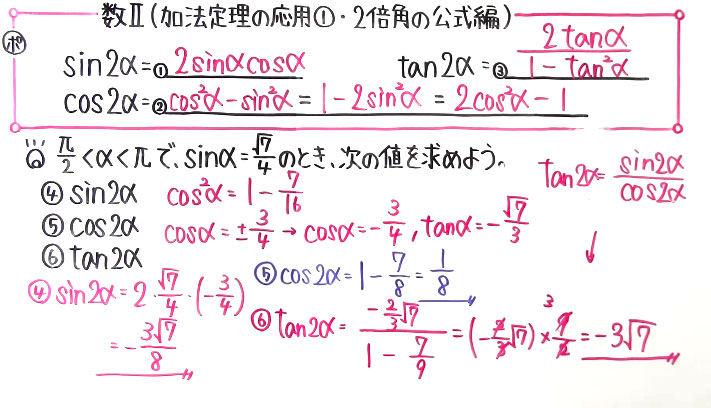 数Ⅱ(加法定理の応用①・2倍角の公式編)
ポ
sin2α=①2sinαcosα tan2α=③2tanα/(1-tan²α)
cos2α=②cos²α-sin²α=1-2sin²α=2cos²α-1
π/2<α<πで、sinα=√7/4のとき、次の値を求めよう。
tan2α=sin2α/cos2α
④sin2α cos²α=1-7/16
⑤cos2α cosα=±3/4→cosα=-3/4,tanα=-√7/3
↓
⑥tan2α
④sin2α=2・√7/4・(-3/4)
=-3√7/8
⑤cos2α=1-7/8=1/8
⑥tan2α=(-2/3√7)/(1-7/9)=(-2/3√7)×9/2=-3√7
3